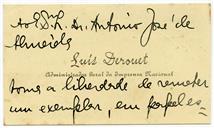 ao Exmo. Sr. Dr. Antonio José de
Almeida
Luís Derouet
Administrador Geral da Imprensa Nacional
toma a liberdade de remeter
um exemplar, em papel